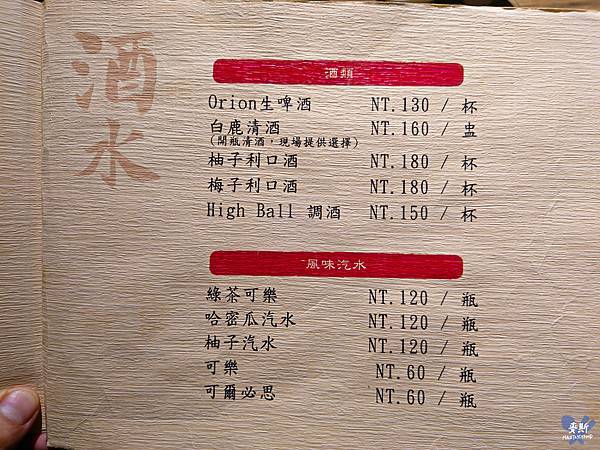 酒水
酒類
Orion生啤酒 NT.130 / 杯
白鹿清酒 NT.160 / 盅
(開瓶清酒，現場提供選擇)
柚子利口酒 NT.180 / 杯
梅子利口酒 NT.180 / 杯
High Ball 調酒 NT.150 / 杯
風味汽水
綠茶可樂 NT.120 / 瓶
哈密瓜汽水 NT.120 / 瓶
柚子汽水 NT.120 / 瓶
可樂 NT.60 / 瓶
可爾必思 NT.60 / 瓶
麥斯